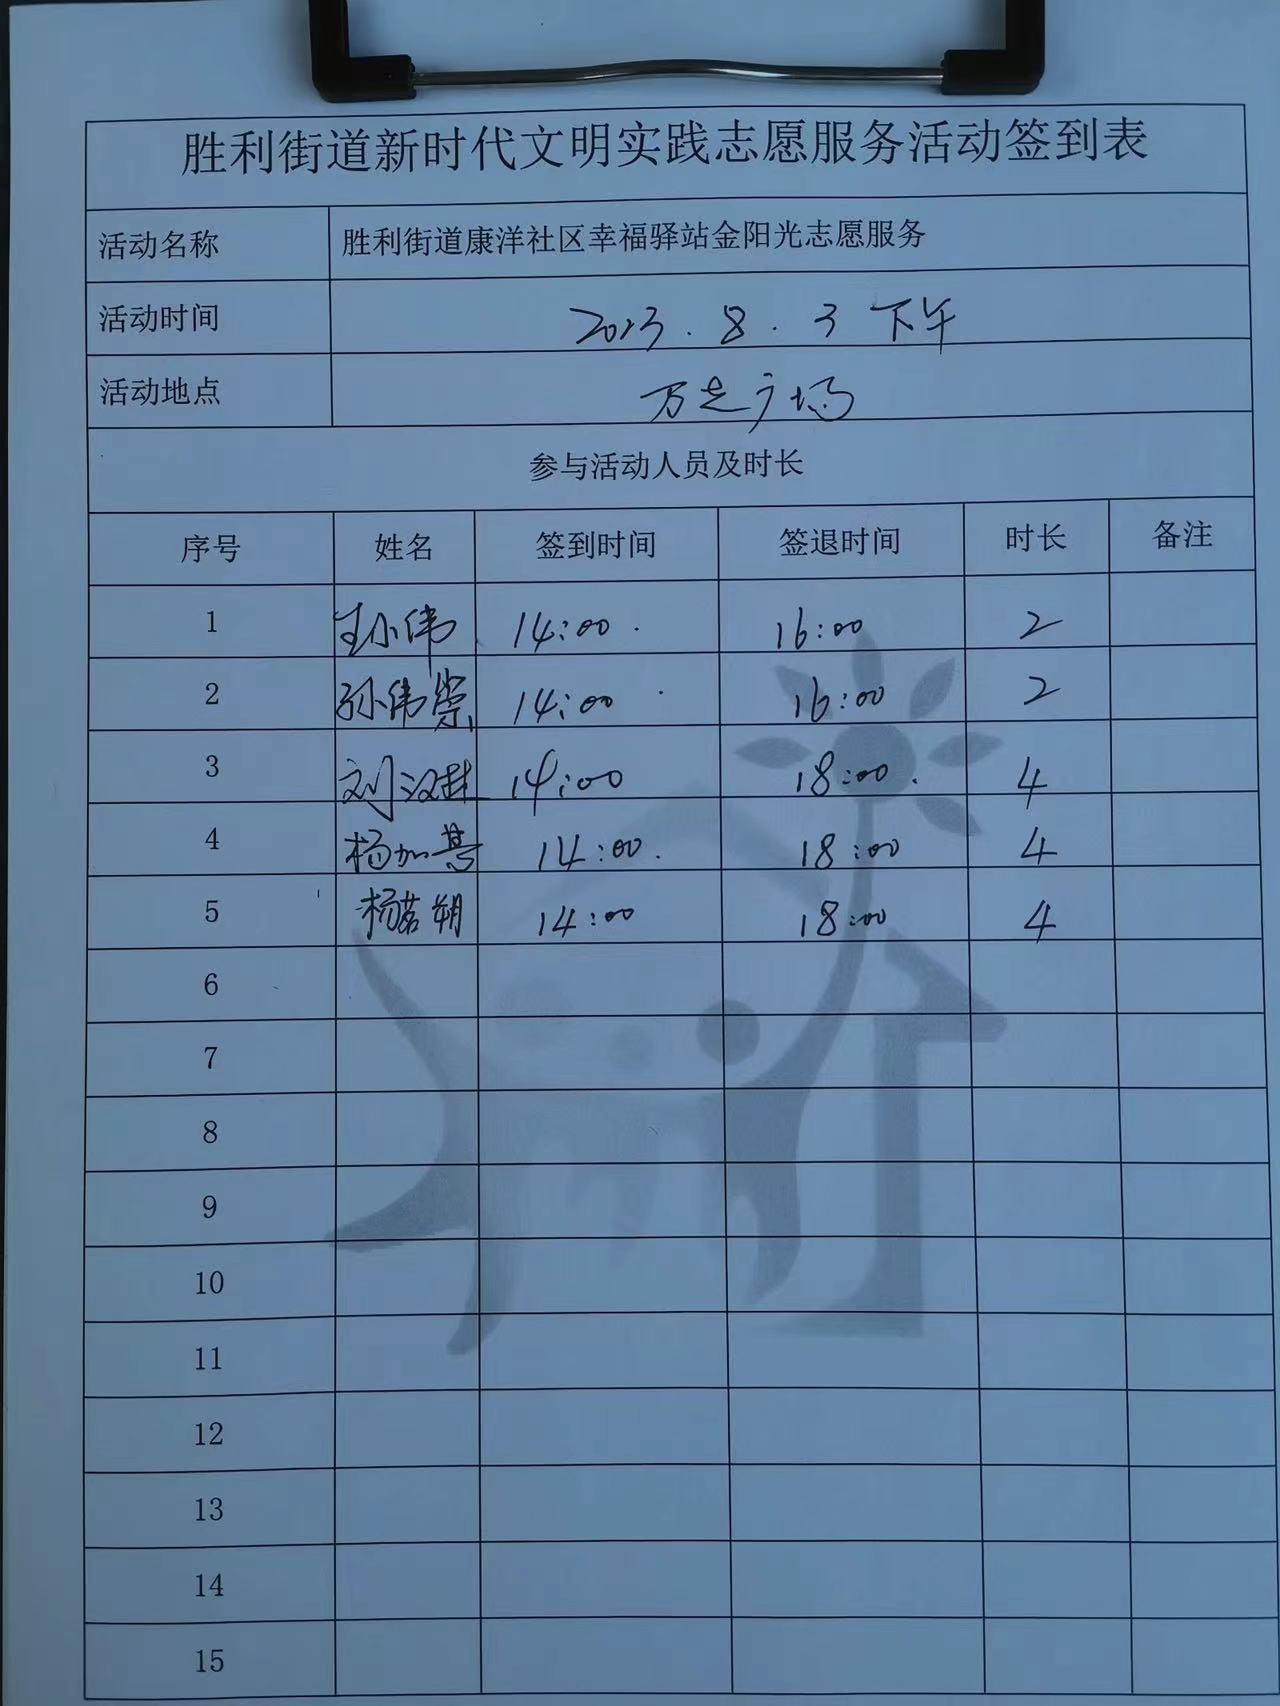 胜利街道新时代文明实践志愿服务活动签到表
活动名称 胜利街道康洋社区幸福驿站金阳光志愿服务
活动时间 2023.8.3 下午
活动地点 万达广场
参与活动人员及时长
序号 姓名 签到时间 签退时间 时长 备注
1 王小伟 14:00 16:00 2
2 孙伟崇 14:00 16:00 2
3 14:00 18:00 4
4 14:00 18:00 4
5 杨茗朔 14:00 18:00 4
6
7
8
9
10
11
12
13
14
15